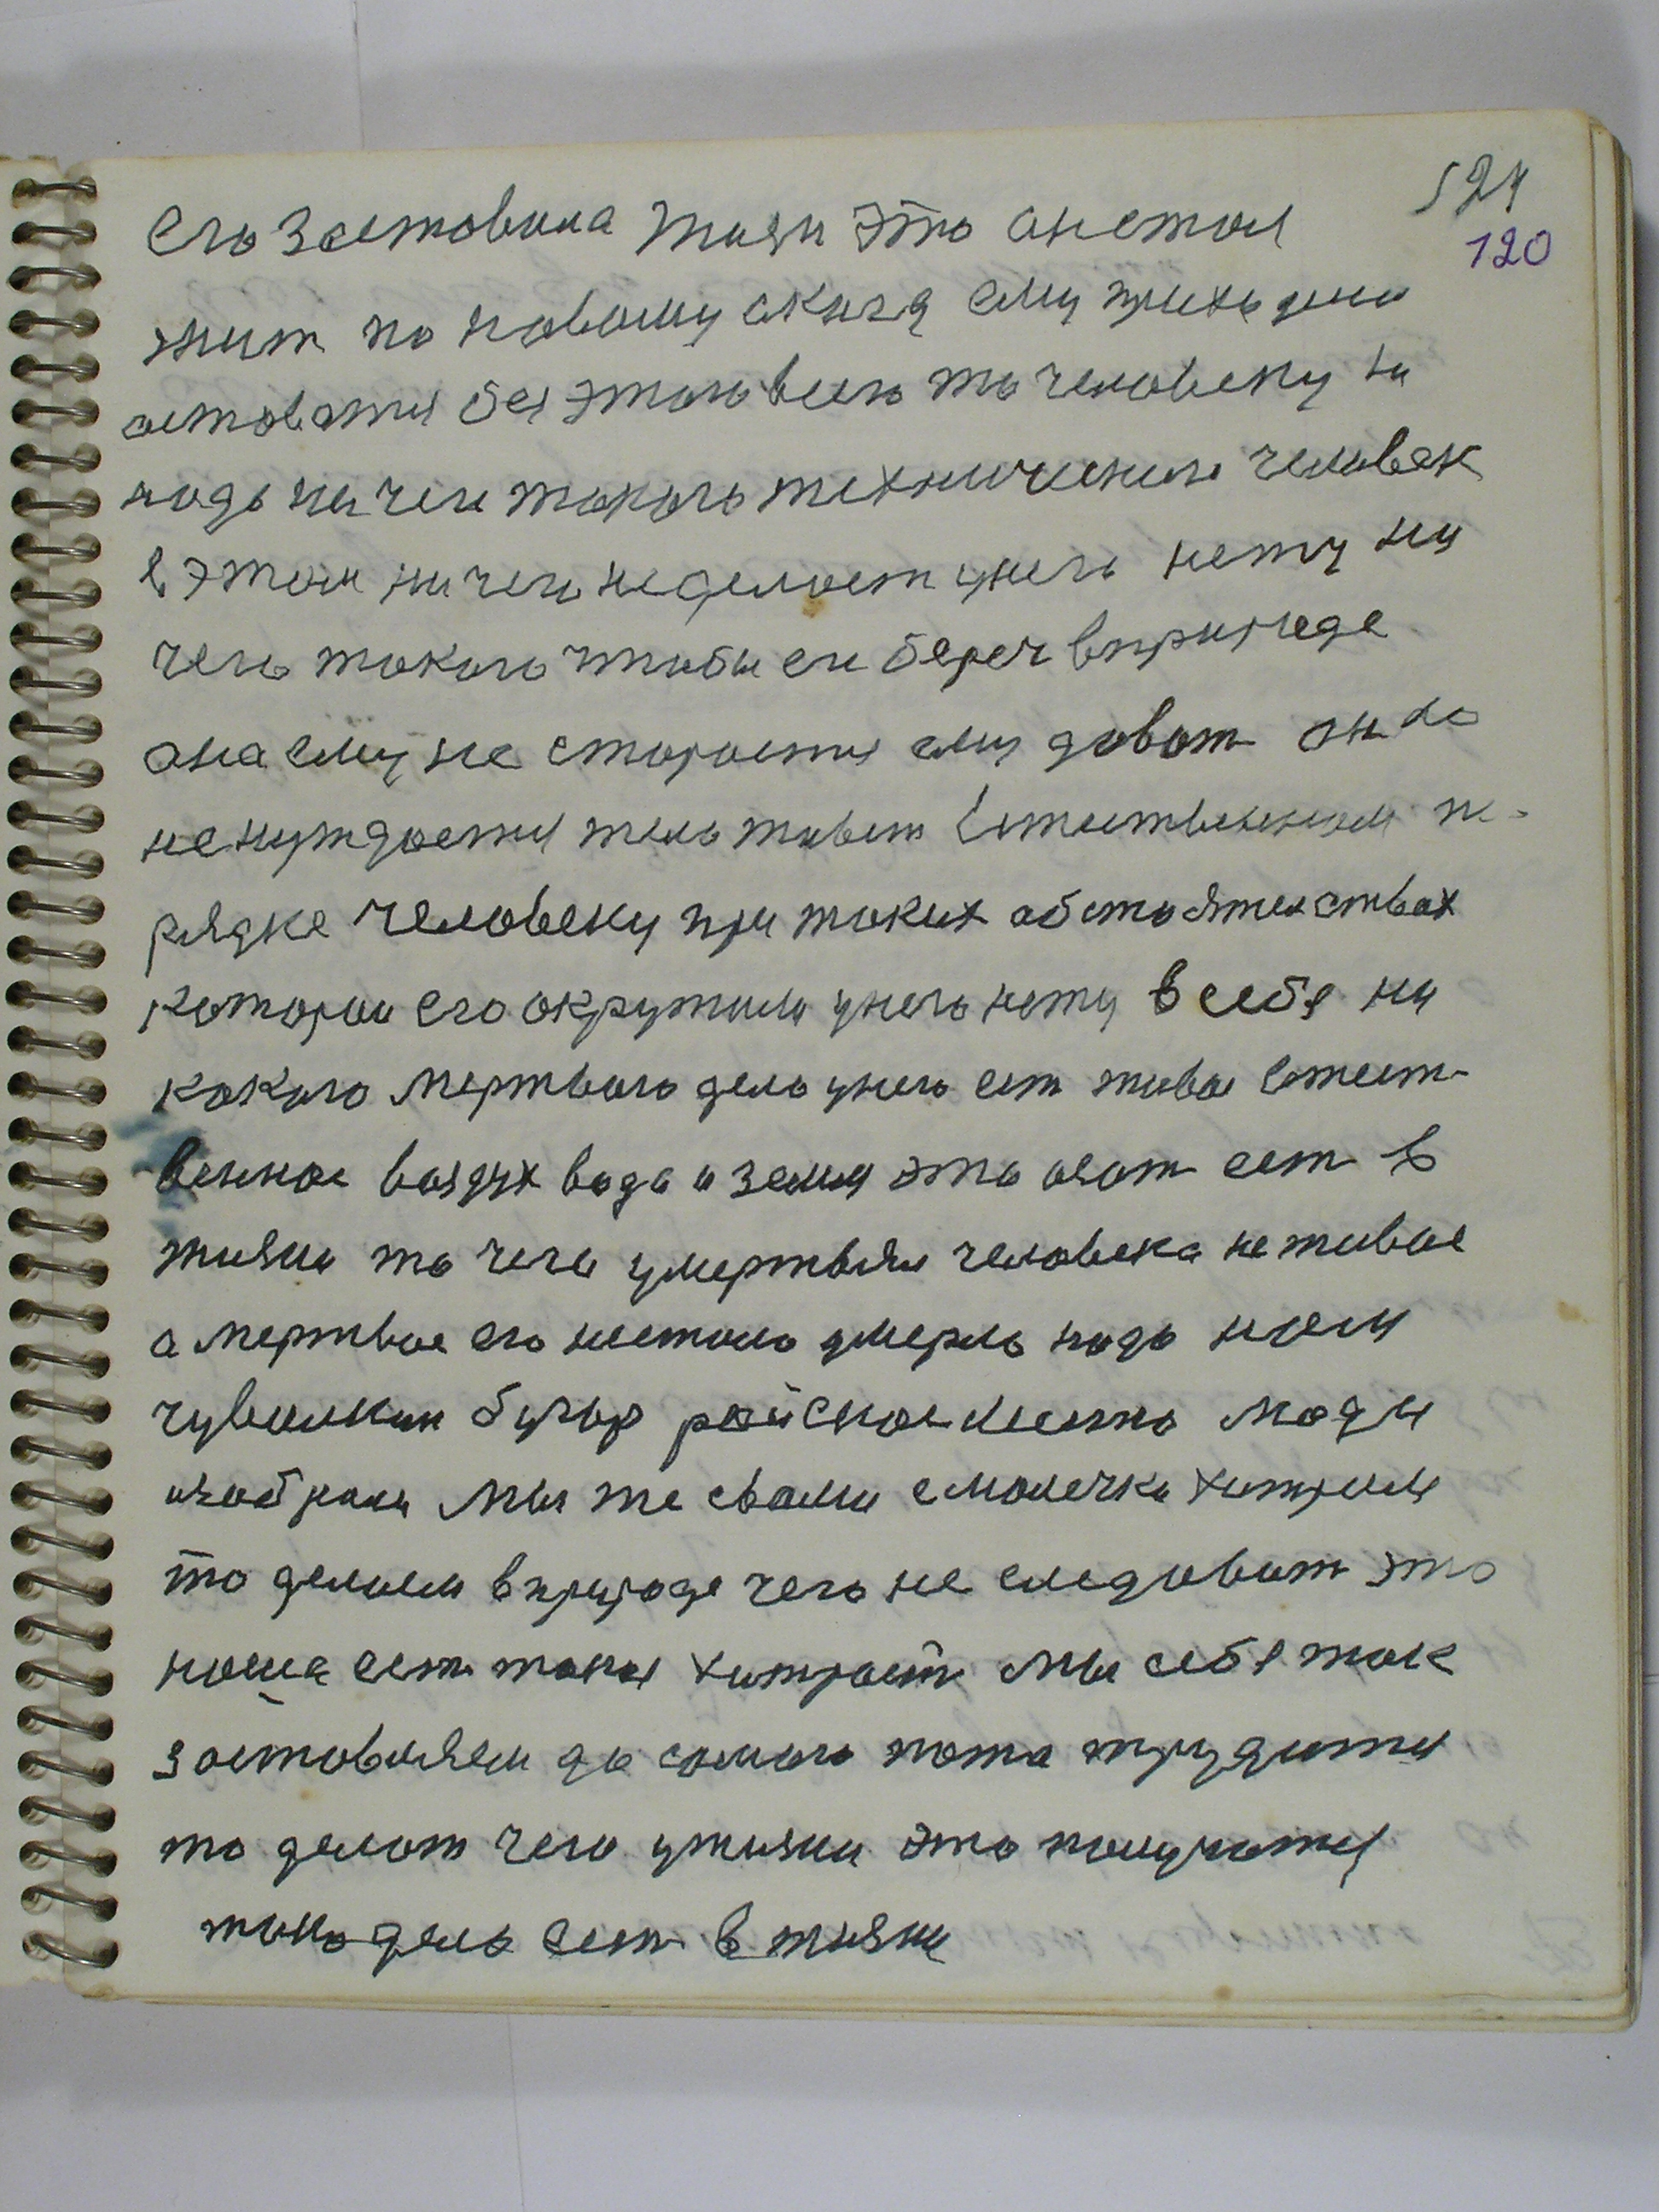 524
120
его заставила жизн это он стал
жит по новому скуча ему приходило
оставатся без этого всего то человеку ни
надо ни чего такого техническога человек
в этом ни чего неделает унего нету ни
чего такого чтобы ен берег вприроде
она ему не стараится ему дават он во
ненуждается тело живет Естественном по-
рядке человеку при таких обстоятелствах
которои его окружили унего нету в себе ни
какого мертвого дела унего ест живое естест-
венное воздух вода и земля это
ест в
жизни то чего умертвлял человека не живое
а мертвое его нестало умерло надо нам
чувилкин бугор райское место люди
избрали мы же свами смолечка хитрим
то делаем вприроде чего не следоват это
наша ест такая хитраст мы себе так
заставляем до самого пота трудится
то делат чего ужизни это получатся
тило дело ест в жизни